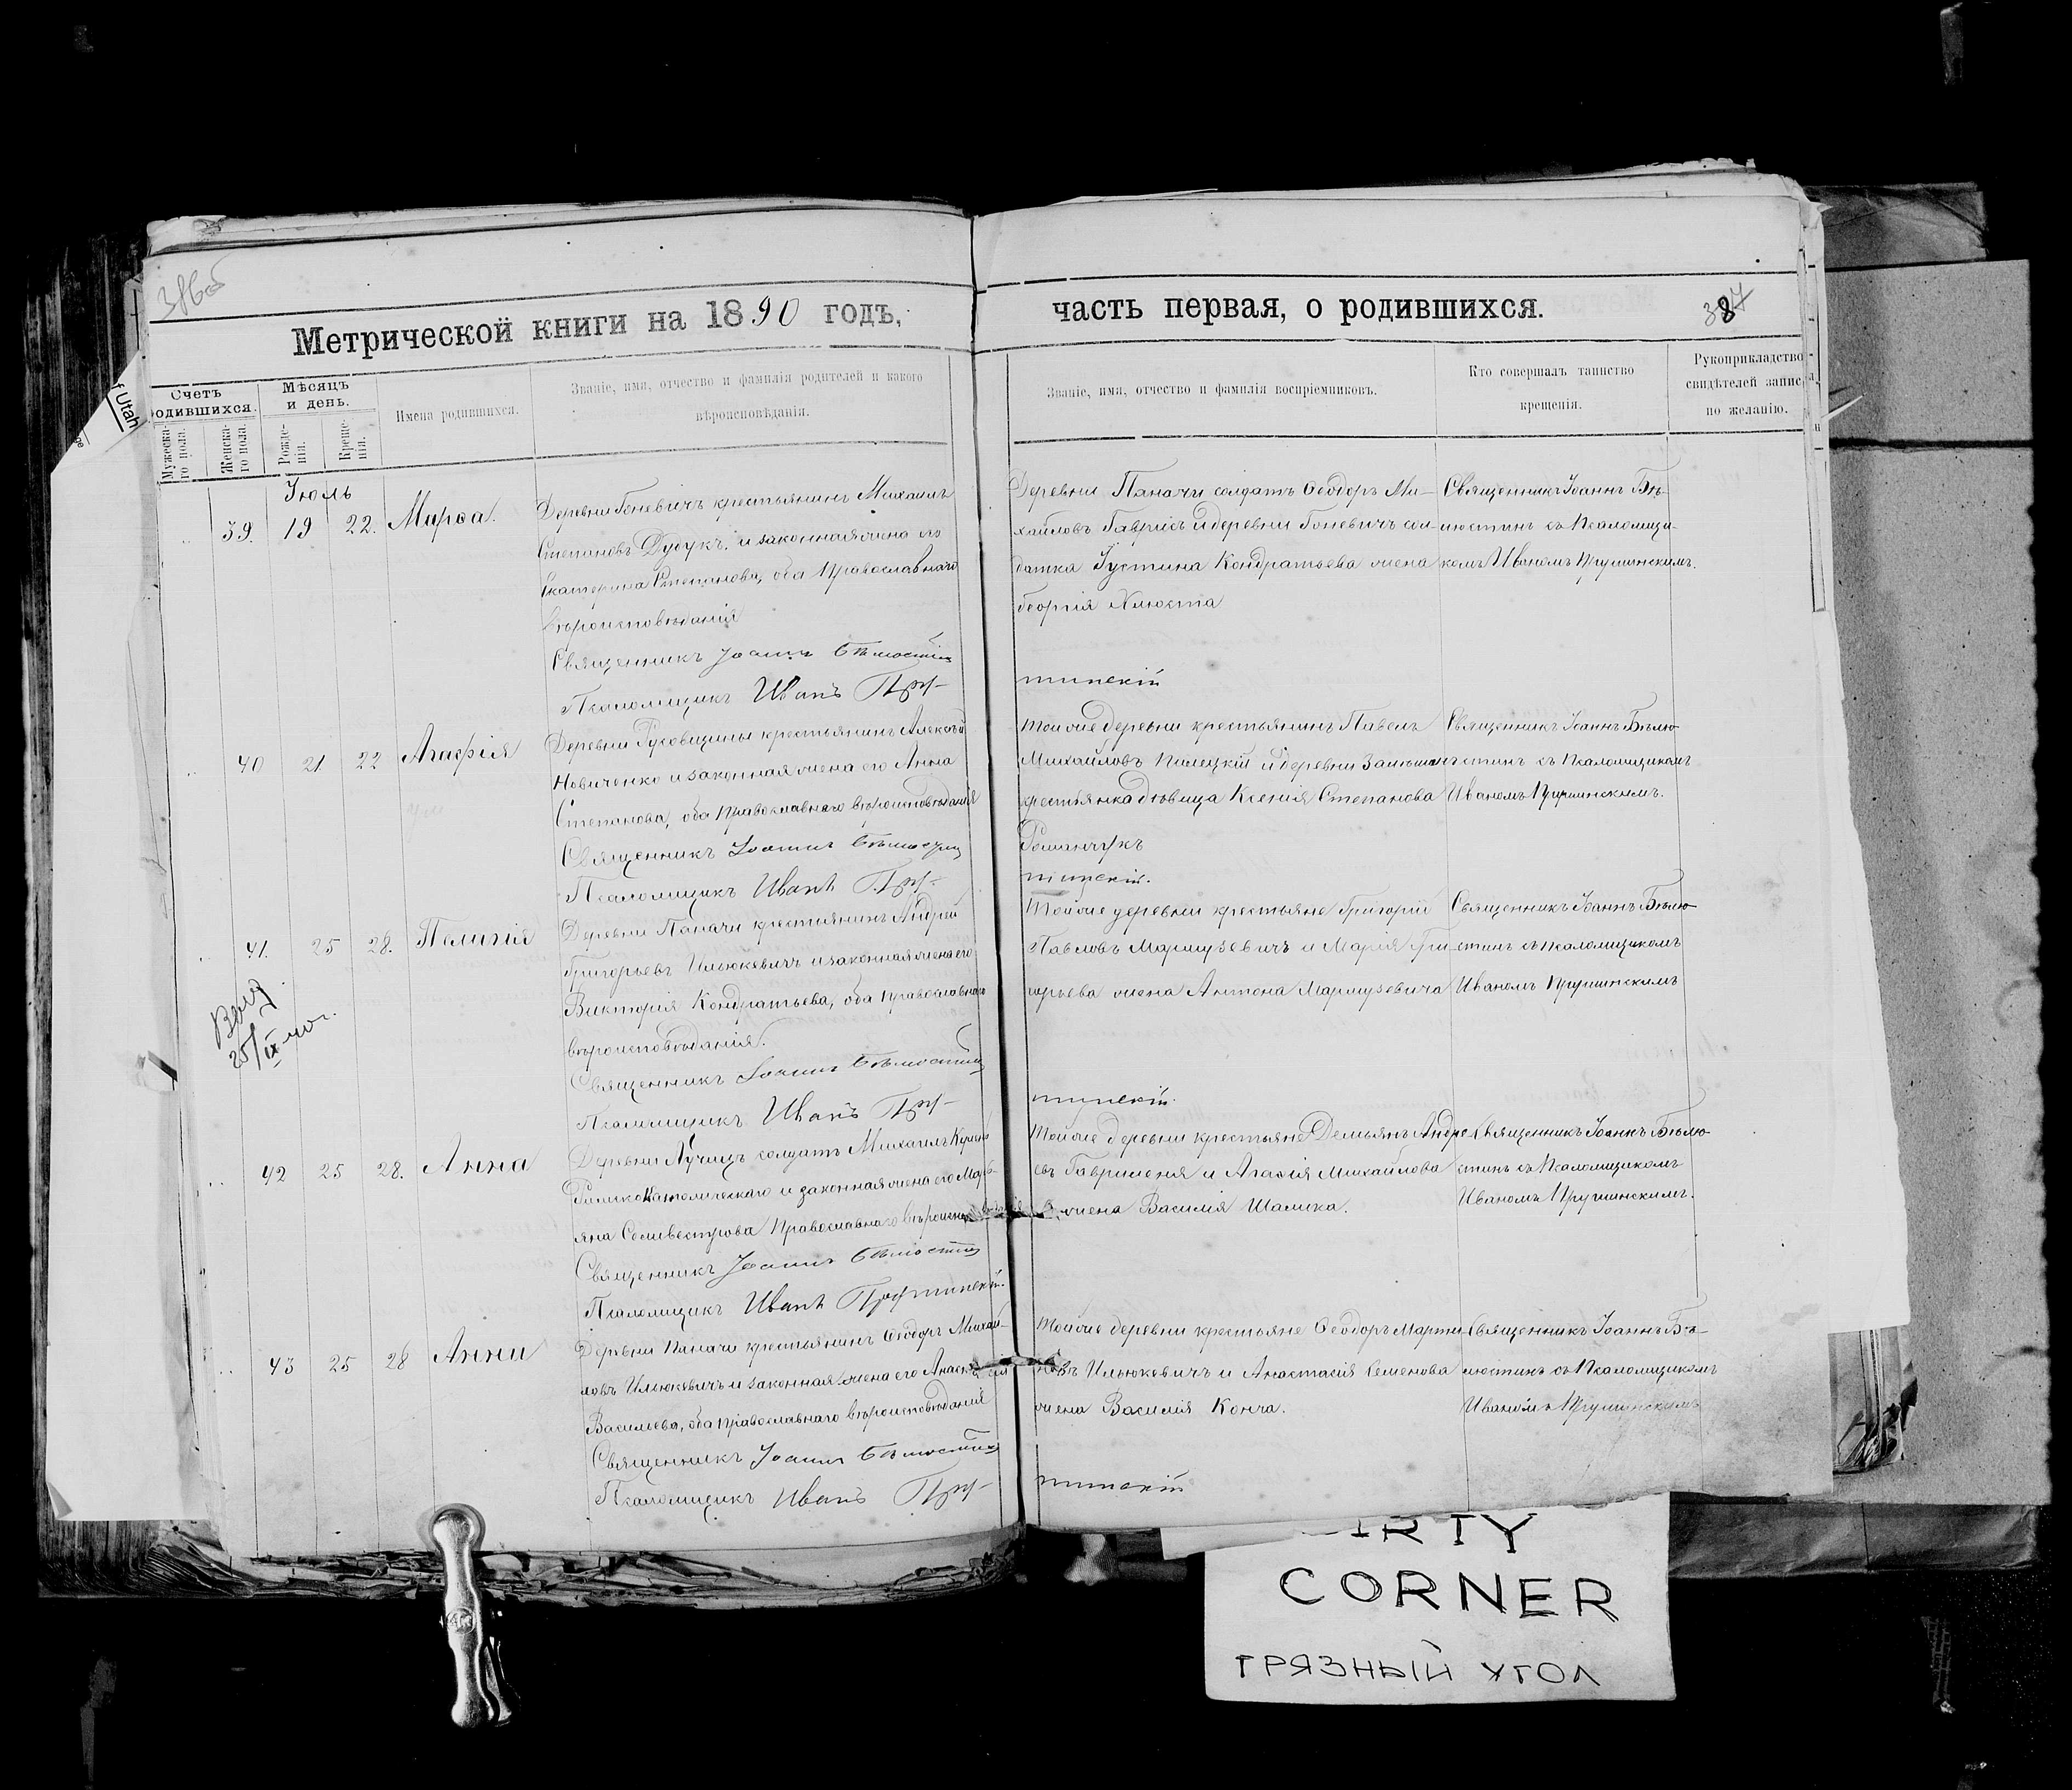 Метрической книги на 1890 годъ,
часть первая, о родившихся.
384
Счетъ родившихся.
Мужеска-
го пола.
Женска-
го пола.
Мѣсяцъ
и день.
Рожде-
нія.
Креще-
нія.
Имена родившихся.
Званіе, имя, отчество и фамилія родителей и какого
вѣроисповѣданія.
Званіе, имя, отчество и фамилія воспріемниковъ.
Кто совершалъ таинство
крещенія.
Рукоприкладство
свидѣтелей записи
по желанію.
Іюль
39. 19 22. Марѳа.
Деревни Гоневичъ крестьянинъ Михаилъ
Степановъ Дубукъ и законная жена его
Екатерина Степанова, оба Православнаго
вѣроисповѣданія
Священникъ Іоаннъ Бѣлюстинъ
Псаломщикъ Иванъ Пру-
Деревни Паначи солдатъ Ѳеодоръ Ми-
хайловъ Гаврисъ и деревни Гоневичъ сол-
датка Іустина Кондратьева жена
Георгія Хлюста
шинскій
Священникъ Іоаннъ Бѣ-
люстинъ съ Псаломщи-
комъ Иваномъ Прушинскимъ.
40 21 22 Агафія
Деревни Гуковщины крестьянинъ Алексѣй
Новиченко и законная жена его Анна
Степанова, оба Православнаго вѣроисповѣданія
Священникъ Іоаннъ Бѣлюстинъ
Псаломщикъ Иванъ Пру-
Той же деревни крестьянинъ Павелъ
Михайловъ Пилецкій и деревни
крестьянка дѣвица Ксенія Степанова
Романчукъ
шинскій.
Священникъ Іоаннъ Бѣлю-
стинъ съ Псаломщикомъ
Иваномъ Прушинскимъ.
41. 25 28. Пелагія
25/IX 40 г.
Деревни Паначи крестьянинъ Андрей
Григорьевъ Ильюкевичъ и законная жена его
Виктория Кондратьева, оба Православнаго
вѣроисповѣданія.
Священникъ Іоаннъ Бѣлюстинъ
Псаломщикъ Иванъ Пру-
Той же деревни крестьяне Григорій
Павловъ Мармузевичъ и Марія Гри-
горьева жена Антона Мармузевича
шинскій.
Священникъ Іоаннъ Бѣлю-
стинъ съ Псаломщикомъ
Иваномъ Прушинскимъ
42 25 28. Анна
Деревни Лучицъ солдатъ Михаилъ
Римскокатолическаго и законная жена его Марь-
яна Селивестрова Православнаго вѣроиспо-
Священникъ Іоаннъ Бѣлюстинъ
Псаломщикъ Иванъ Прушинскій.
Той же деревни крестьяне Демьянъ Андре-
евъ Гавриленя и Агафія Михайлова
жена Василія Шалика.
Священникъ Іоаннъ Бѣлю-
стинъ съ Псаломщикомъ
Иваномъ Прушинскимъ.
43 25 28 Анна
Деревни Паначи крестьянинъ Ѳеодоръ Михай-
ловъ Ильюкевичъ и законная жена его Анастасія
Васильева, оба православнаго вѣроисповѣданія
Священникъ Іоаннъ Бѣлюстинъ
Псаломщикъ Иванъ Пру-
Той же деревни крестьяне Ѳеодоръ Марти-
новъ Ильюкевичъ и Анастасія Семенова
жена Василія Конча.
шинскій
Священникъ Іоаннъ Бѣ-
люстинъ съ Псаломщикомъ
Иваномъ Прушинскимъ
CORNER
ГРЯЗНЫЙ УГОЛ